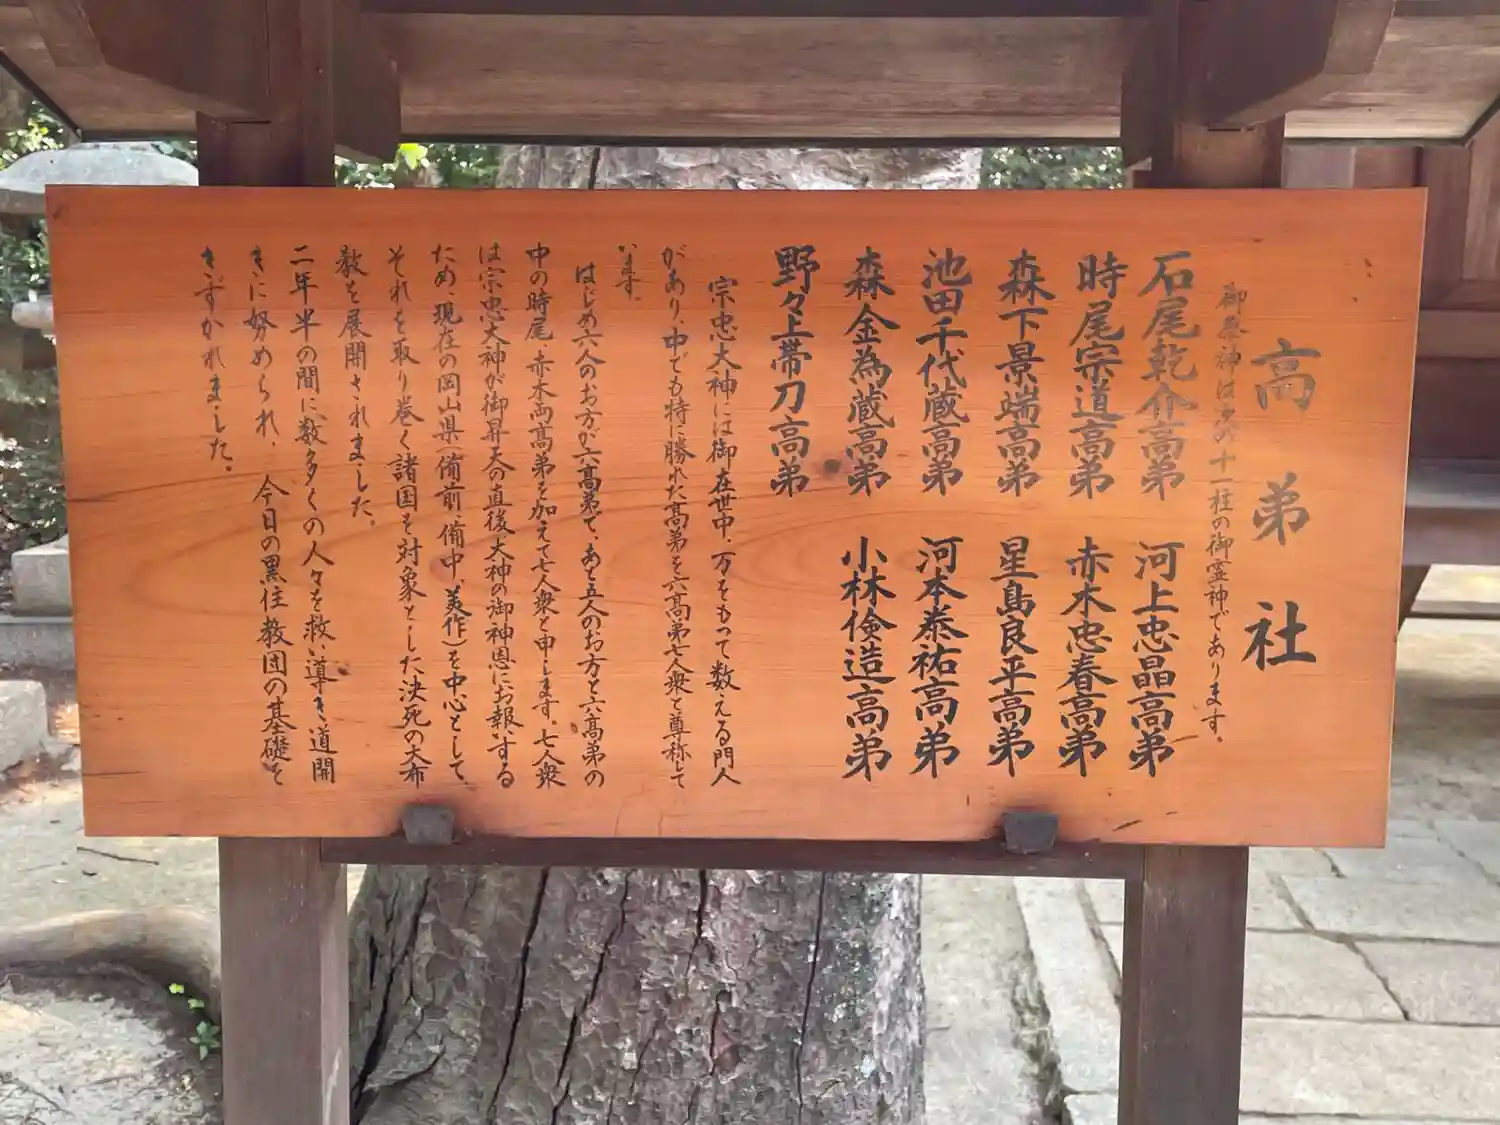 高弟社
御祭神は次の十一柱の御霊神であります。
石尾乾介高弟 河上忠晶高弟
時尾宗道高弟 赤木忠春高弟
森下景端高弟 星島良平高弟
池田千代蔵高弟 河本泰祐高弟
森金為蔵高弟 小林倹造高弟
野々上帯刀高弟
宗忠大神には御在世中、万をもって数える門人
があり、中でも特に勝れた高弟を六高弟七人衆と尊称して
います。
はじめ六人のお方が六高弟で、あと五人のお方と六高弟の
中の時尾、赤木両高弟を加えて七人衆と申します。七人衆
は宗忠大神が御昇天の直後大神の御神恩にお報いする
ため、現在の岡山県(備前、備中、美作)を中心として、
それを取り巻く諸国を対象とした決死の大布
教を展開されました。
二年半の間に数多くの人々を救い導き道開
きに努められ、今日の黒住教団の基礎を
きずかれました。